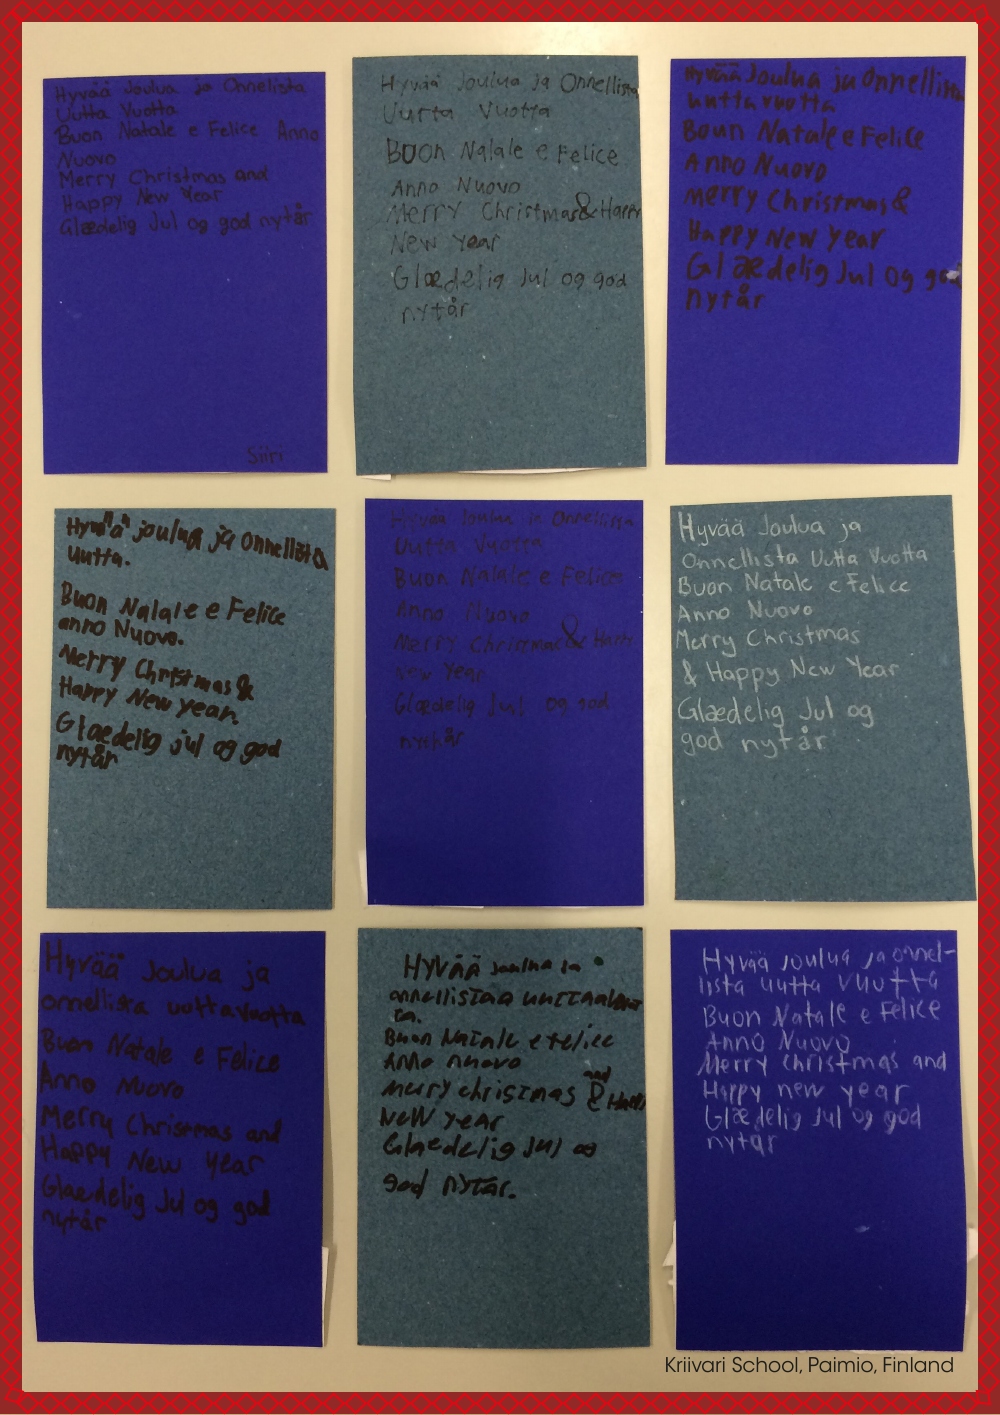 Hyvää Joulua ja Onnelista
Uutta Vuotta
Buon Natale e Felice Anno
Nuovo
Merry Christmas and
Happy New Year
Glædelig Jul og god nytår
Siiri
Hyvää Joulua ja Onnellista
Uutta Vuotta
Buon Nalale e Felice
Anno Nuovo
Merry Christmas & Happy
New Year
Glædelig Jul og god
nytår
Hyvää Joulua ja Onnellista
uutta vuotta
Boun Natale e Felice
Anno Nuovo
merry Christmas &
Happy New Year
Glædelig Jul og god
nytår
Hyvää joulua ja Onnellista
Uutta.
Buon Nalale e Felice
anno Nuovo.
Merry Christmas &
Happy New year.
Glædelig jul og god
nytår
Hyvää Joulua ja Onnellista
Uutta Vuotta
Buon Nalale e Felice
Anno Nuovo
Merry Christmas & Happy
new Year
Glædelig Jul og god
Hyvää Joulua ja
Onnellista Uutta Vuotta
Buon Natale e Felice
Anno Nuovo
Merry Christmas
& Happy New Year
Glædelig Jul og
god nytår
Hyvää Joulua ja
onnellista uutta vuotta
Buon Natale e Felice
Anno Nuovo
Merry Christmas and
Happy New Year
Glaedelig Jul og god
nytår
Hyvää Joulua ja
onnellistaa
ta.
Buon Natale e felice
Anno nuovo
christmas and &
New year
Glaedelig Jul og
god nytar.
Hyvää Joulua ja onnel-
lista uutta vuotta
Buon Natale e Felice
Anno Nuovo
Merry Christmas and
Happy new year
Glædelig Jul og god
nytår
Kriivari School, Paimio, Finland